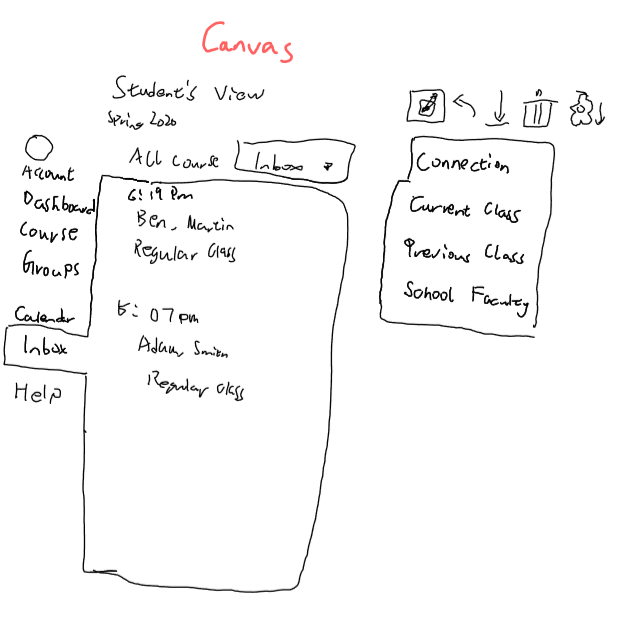 Canvas
Student's View
Spring 2020
All Course
Inbox
Account
Dashboard
Course
Groups
Calendar
Inbox
Help
6:19 Pm
Ben, Martin
Regular Class
5:07 pm
Adam Smith
Regular Class
Connection
Current Class
Previous Class
School Faculty